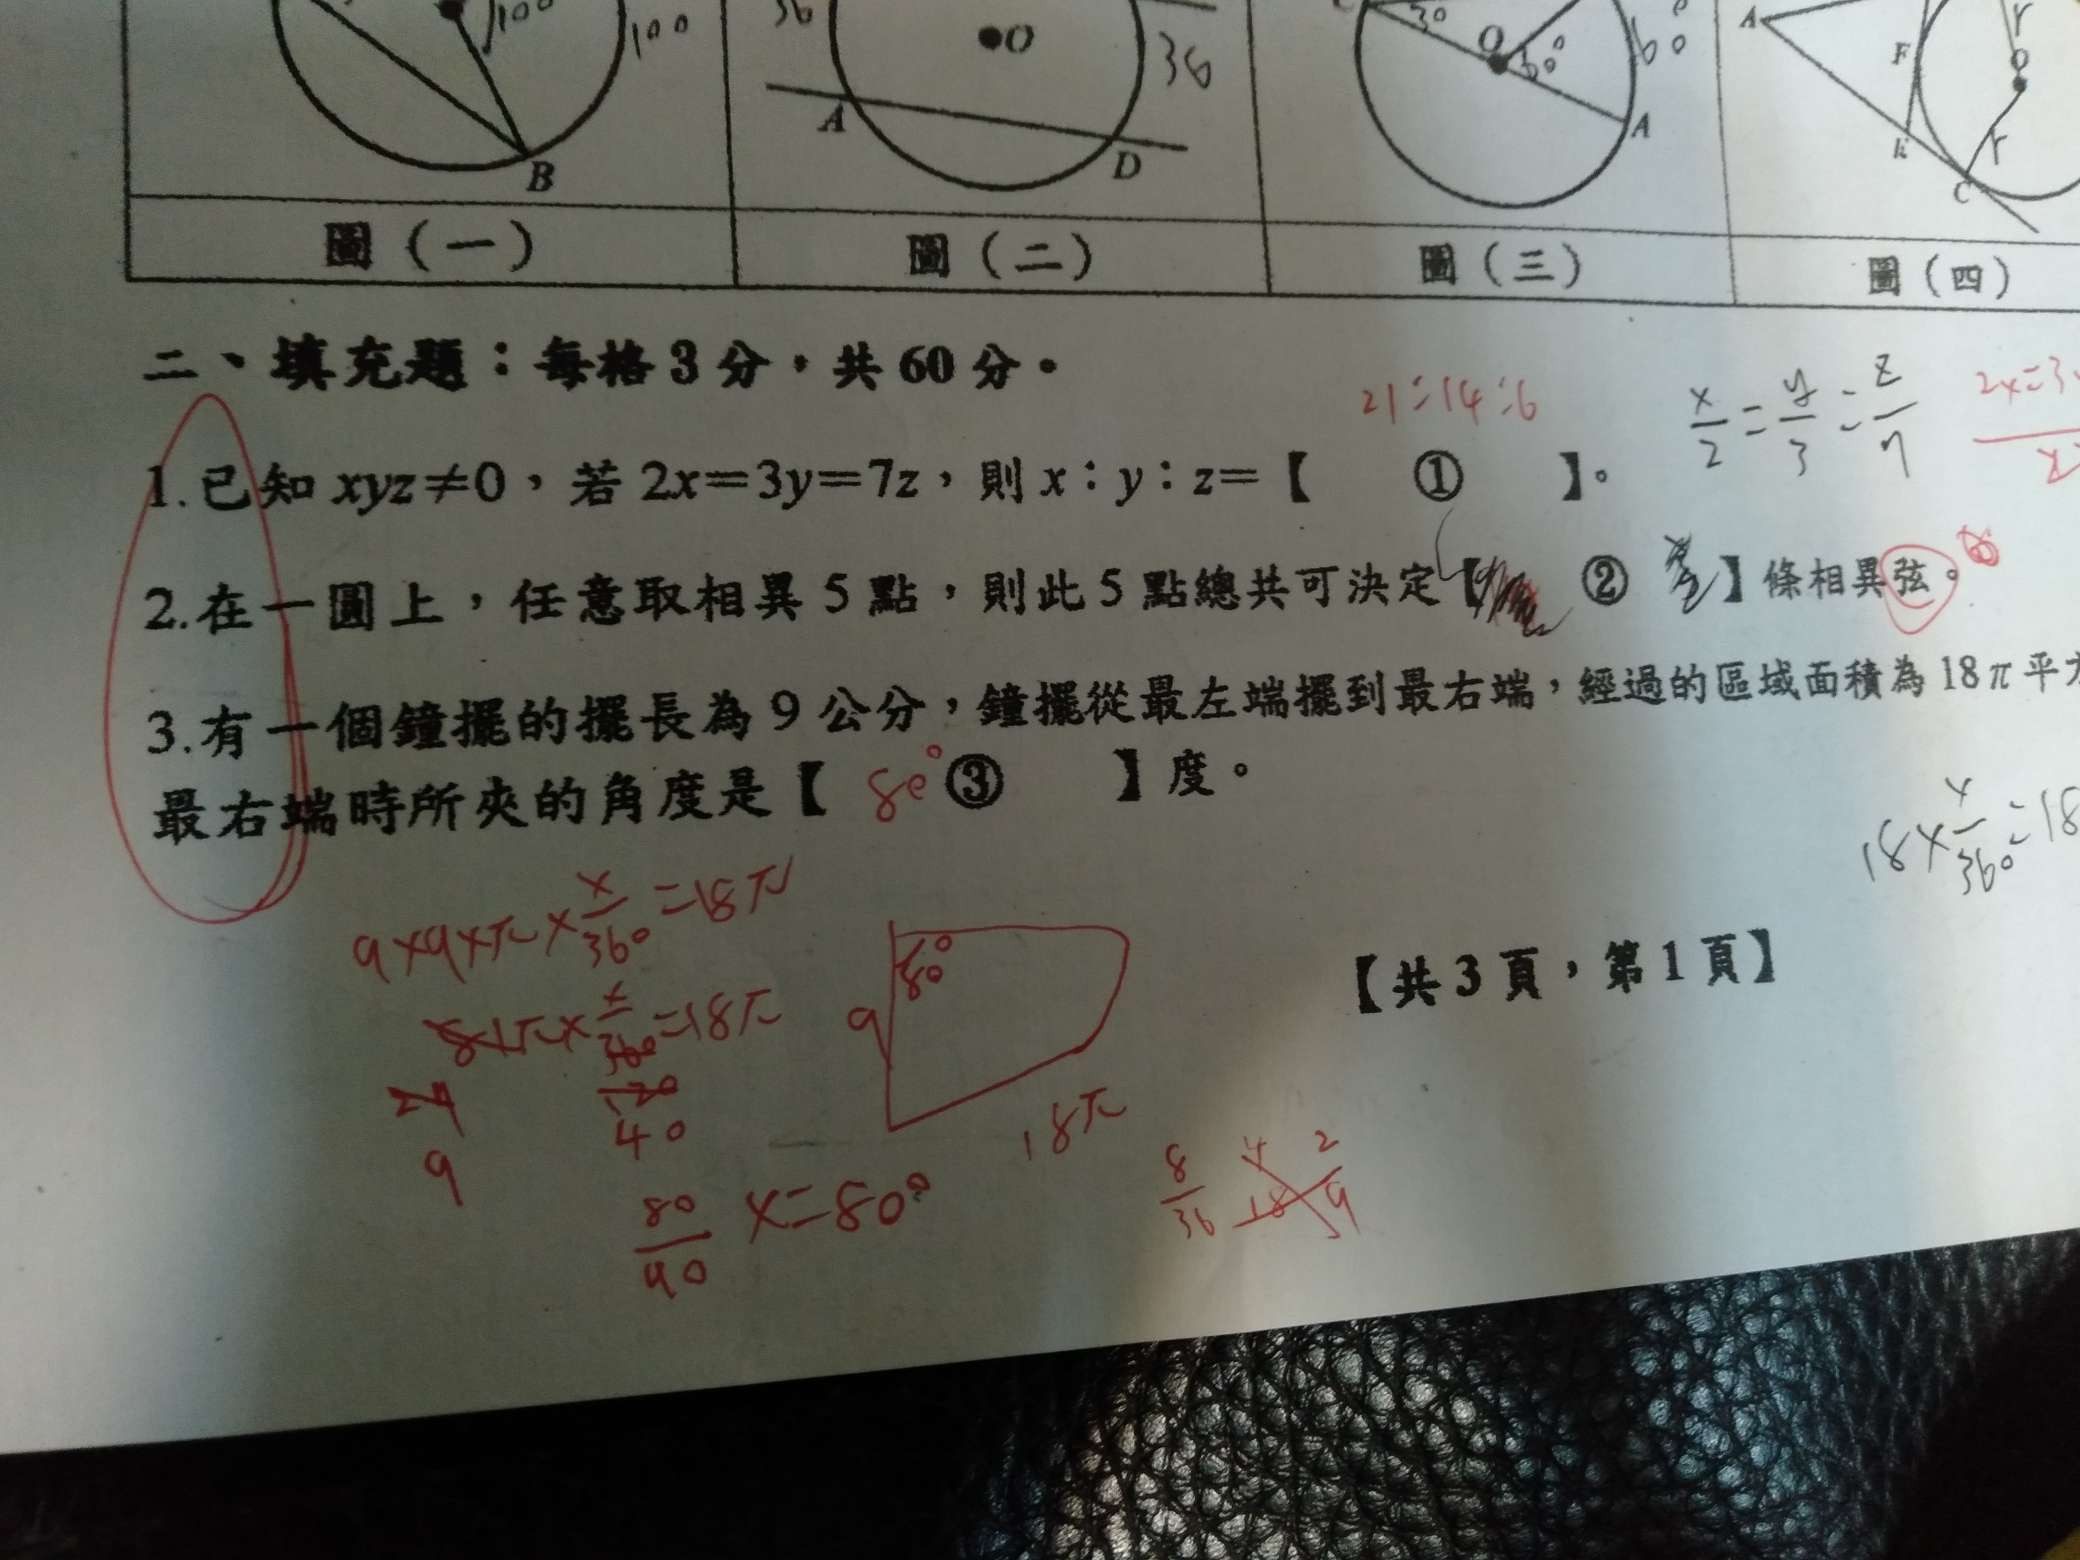 100
100
36
O
36
A
D
B
30
O
60°
60
A
A
F
r
O
r
C
圖（一）
圖（二）
圖（三）
圖（四）
二、填充題：每格3分，共60分。
21:14:6
x/2=y/3=z/7
2x=3
1.已知 xyz≠0，若 2x=3y=7z，則 x：y：z=【 ① 】。
2.在一圓上，任意取相異 5 點，則此 5 點總共可決定【 ② 】條相異弦。
3.有一個鐘擺的擺長為 9 公分，鐘擺從最左端擺到最右端，經過的區域面積為 18π 平方
最右端時所夾的角度是【 80° ③ 】度。
18×x/360=18
9×9×π×x/360=18π
81π×x/360=18π
27
120
9
40
80/40 x=80°
9
18π
8/36 4/18 2/9
【共 3 頁，第 1 頁】